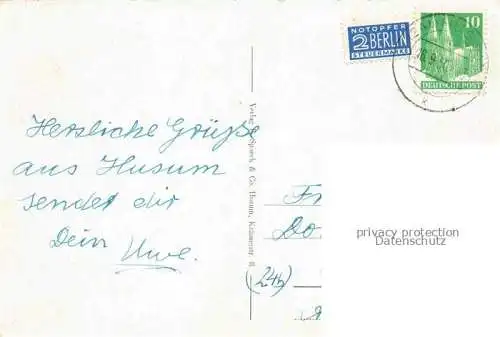 NOTOPFER
2 BERLIN
STEUERMARKE
10
DEUTSCHE POST
Herzliche Grüße
aus Husum
sendet dir
Dein Uwe.
Fr
Do
privacy protection
Datenschutz
(24b)